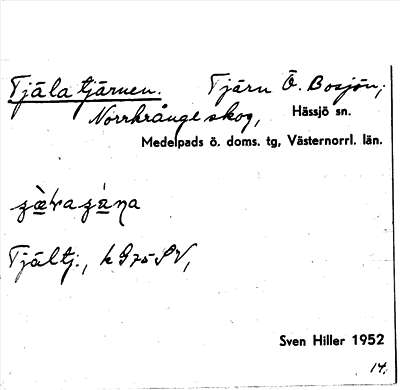 Tjälatjärnen. Tjärn Ö. Bosjön,
Norrkrånge skog, Hässjö sn.
Medelpads ö. doms. tg, Västernorrl. län.
Tjältj., k 975 SV,
Sven Hiller 1952
14.